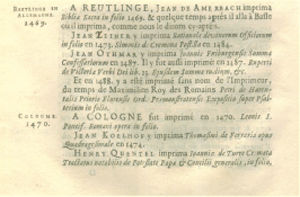 REUTLINGE EN
ALLEMAGNE.
1469.
A REUTLINGE, JEAN DE AMERBACH imprima
Biblia Sacra in folio 1469. & quelque temps après il alla à Basle
ou il imprima, comme nous le dirons cy-après.
JEAN ZEINER y imprima Rationale divinorum Officiorum
in folio en 1473. Summis de Cremona Postilla en 1484.
JEAN OTHMAR y imprima Joannis Friburgensis Summa
Confessorum en 1487. Il y fut aussi imprimé en 1487. Ruperti
de Victoria Verbi Dei lib. 13. ejusdem Summa in folio, &c.
Et en 1488. y a esté imprimé sans nom de l'Imprimeur,
du temps de Maximilien Roy des Romains Petri de
Ord. Præmonstratensis Expositio super
in folio.
COLOGNE
1470.
A COLOGNE fut imprimé en 1470. Leonis I.
Pontif. Romani opera in folio.
JEAN KOELHOF y imprima Thomasini de Ferraria opus
Quadragesimale en 1474.
HENRY QUENTEL imprima Joannis de Turre Cremata
Tractatus notabilis de Potestate Papæ & Concilii generalis, in folio.